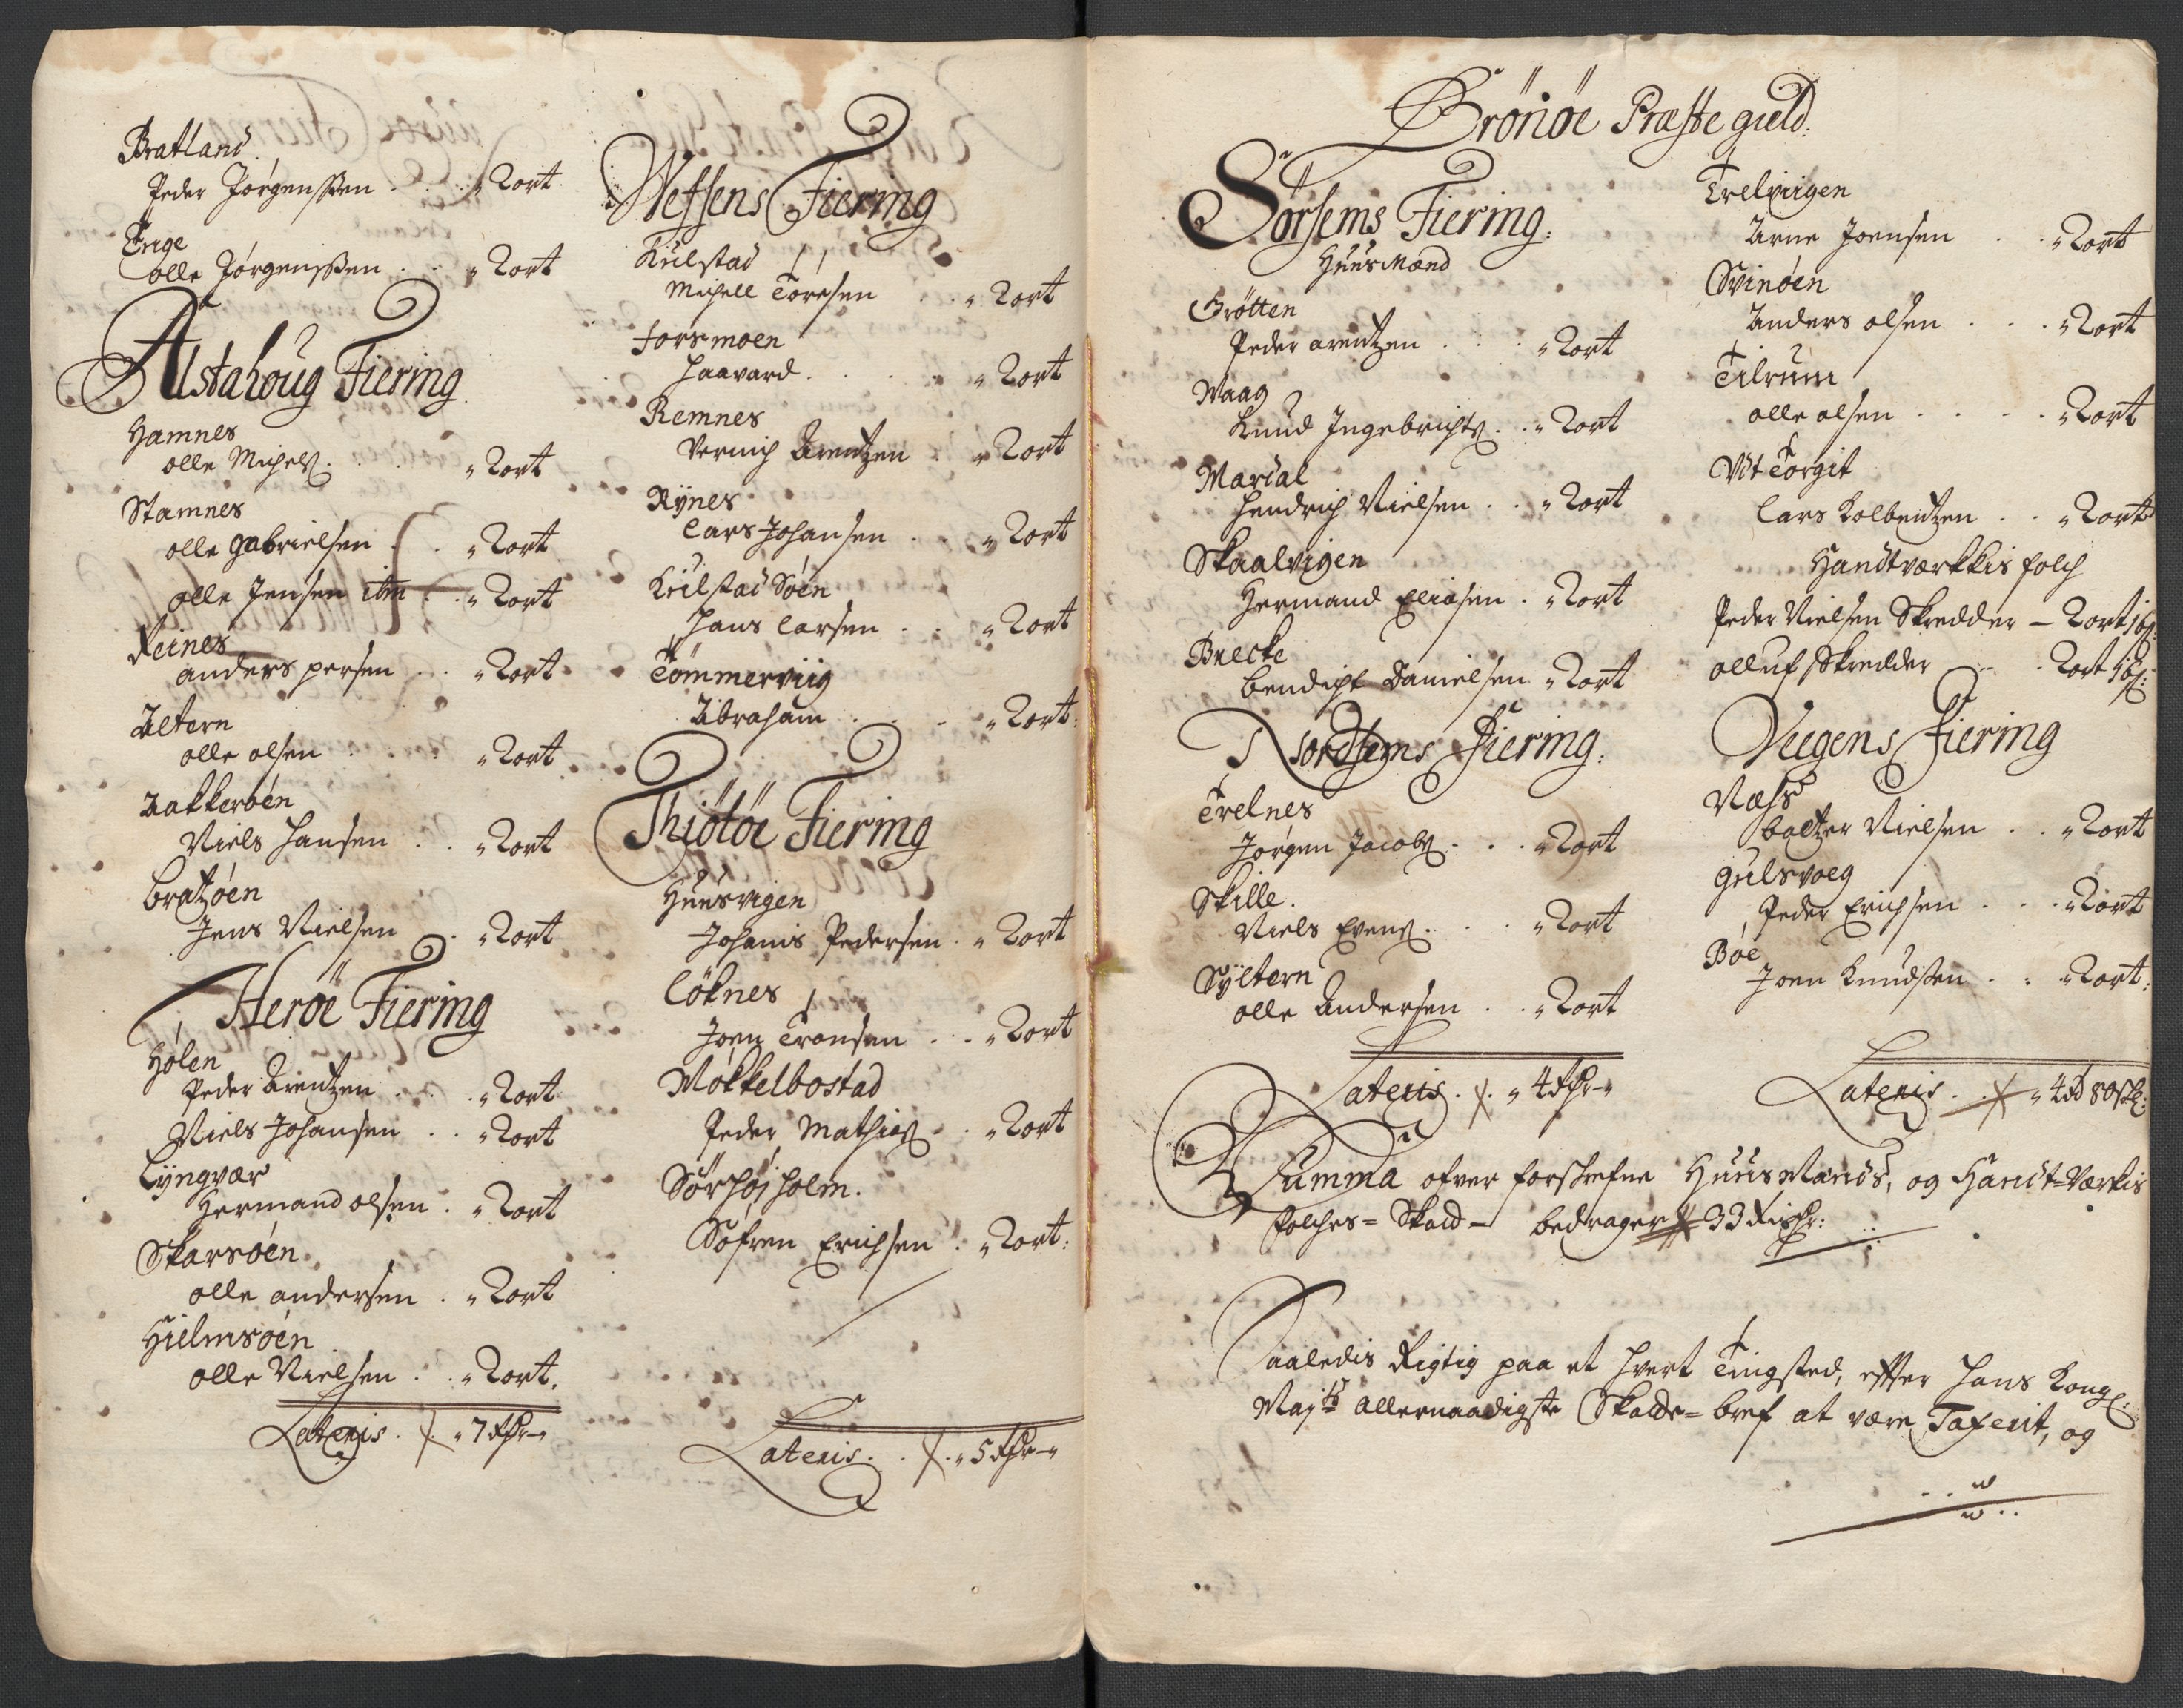 Bratland
Peder Jørgenssen . . . " 2 ort
Trige
olle Jørgenssen . . " 2 ort
Alstahoug Fiering
Hamnes
olle Michels: . . " 2 ort
Stamnes
olle gabrielsen . . " 2 ort
olle Jensen ibm . . " 2 ort
Reines
anders persen . . " 2 ort
Altern
olle olsen . . " 2 ort
Aakkerøen
Niels Hansen . . " 2 ort
bratzøen
Jens Nielsen . . " 2 ort
Herøe Fiering
Hølen
Peder Arentzen . . " 2 ort
Niels Johansen . . " 2 ort
Lyngvær
Hermand olsen . " 2 ort
Skarsøen
olle andersen . " 2 ort
Hielmsøen
olle Nielsen . . " 2 ort.
Lateris . " 7 dhr -"
Wefsens Fiering
Kulstad
Michell Toresen . . " 2 ort
forsmoen
Haavard . . . " 2 ort
Remnes
Arentzen . " 2 ort
Rynes
Lars Johansen . . " 2 ort
Kulstad Søen
Hans Larsen . . " 2 ort
Tømmerviig
Abraham . . " 2 ort:
Thiøtøe Fiering
Huusvigen
Johanis Pedersen . " 2 ort
Løknes
Joen Tronsen . . " 2 ort
Møkkelbostad
Peder Mathias: . " 2 ort
Sørhøjholm.
Søfren Erichsen . " 2 ort:
Lateris . . " 5 dhr -"
Brønøe Præstegield.
Sørsems Fiering:
Huusmænd
Grøtten
Peder arentzen . . . " 2 ort
Waag
Knud Ingebrichts: . " 2 ort
Mardal
Hendrich Nielsen . . " 2 ort
Skaalvigen
Hermand Eliasen . " 2 ort
Brecke
bendicht Danielsen " 2 ort
Nordsems Fiering:
Trelnes
Jørgen Jacobs: . . . " 2 ort
Skille.
Niels Evens: . . . " 2 ort
Syltern
olle Andersen . . " 2 ort
Lateris . " 4 dhr -"
Trelviigen
Arne Joensen . . " 2 ort
Svinøen
Anders olsen . . . " 2 ort
Tilrum
olle olsen . . . . " 2 ort
Ut Torgit
Lars Kolbentzen . . " 2 ort
Handtværkkis folch
Peder Nielsen Skredder — 2 ort 16 s:
olluf Skredder . . 2 ort 16 s:
Veegens Fiering
Næss
baltzer Nielsen . . " 2 ort
gulsvaag
Peder Erichsen . . . " 2 ort
Bøe
Joen Knudsen . . " 2 ort:
Lateris . . " 4 d 80 sk:
Summa ofver forskrefne Huusmænds, og Handt=værkis
folches = Skatt — bedrager 33 Rixdr:
Saaledis Rigtig paa et hvert Tingsted, efter Hans Kongl:
Maj:ts allernaadigste Skatte=bref at være Taxerit, og